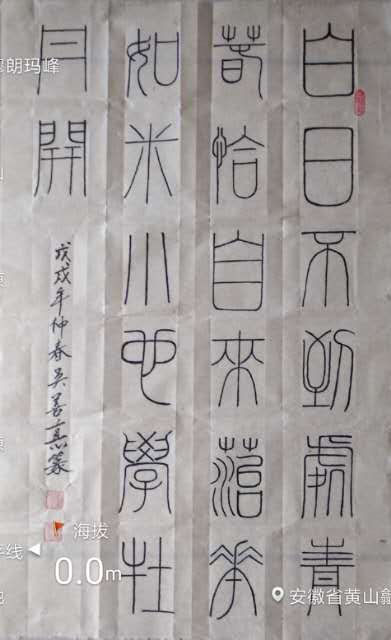 白日不到處青
春恰自來菭華
如米小也學牡
丹開
戊戌年仲春吴善真篆
朗玛峰
海拔
0.0m
安徽省黄山